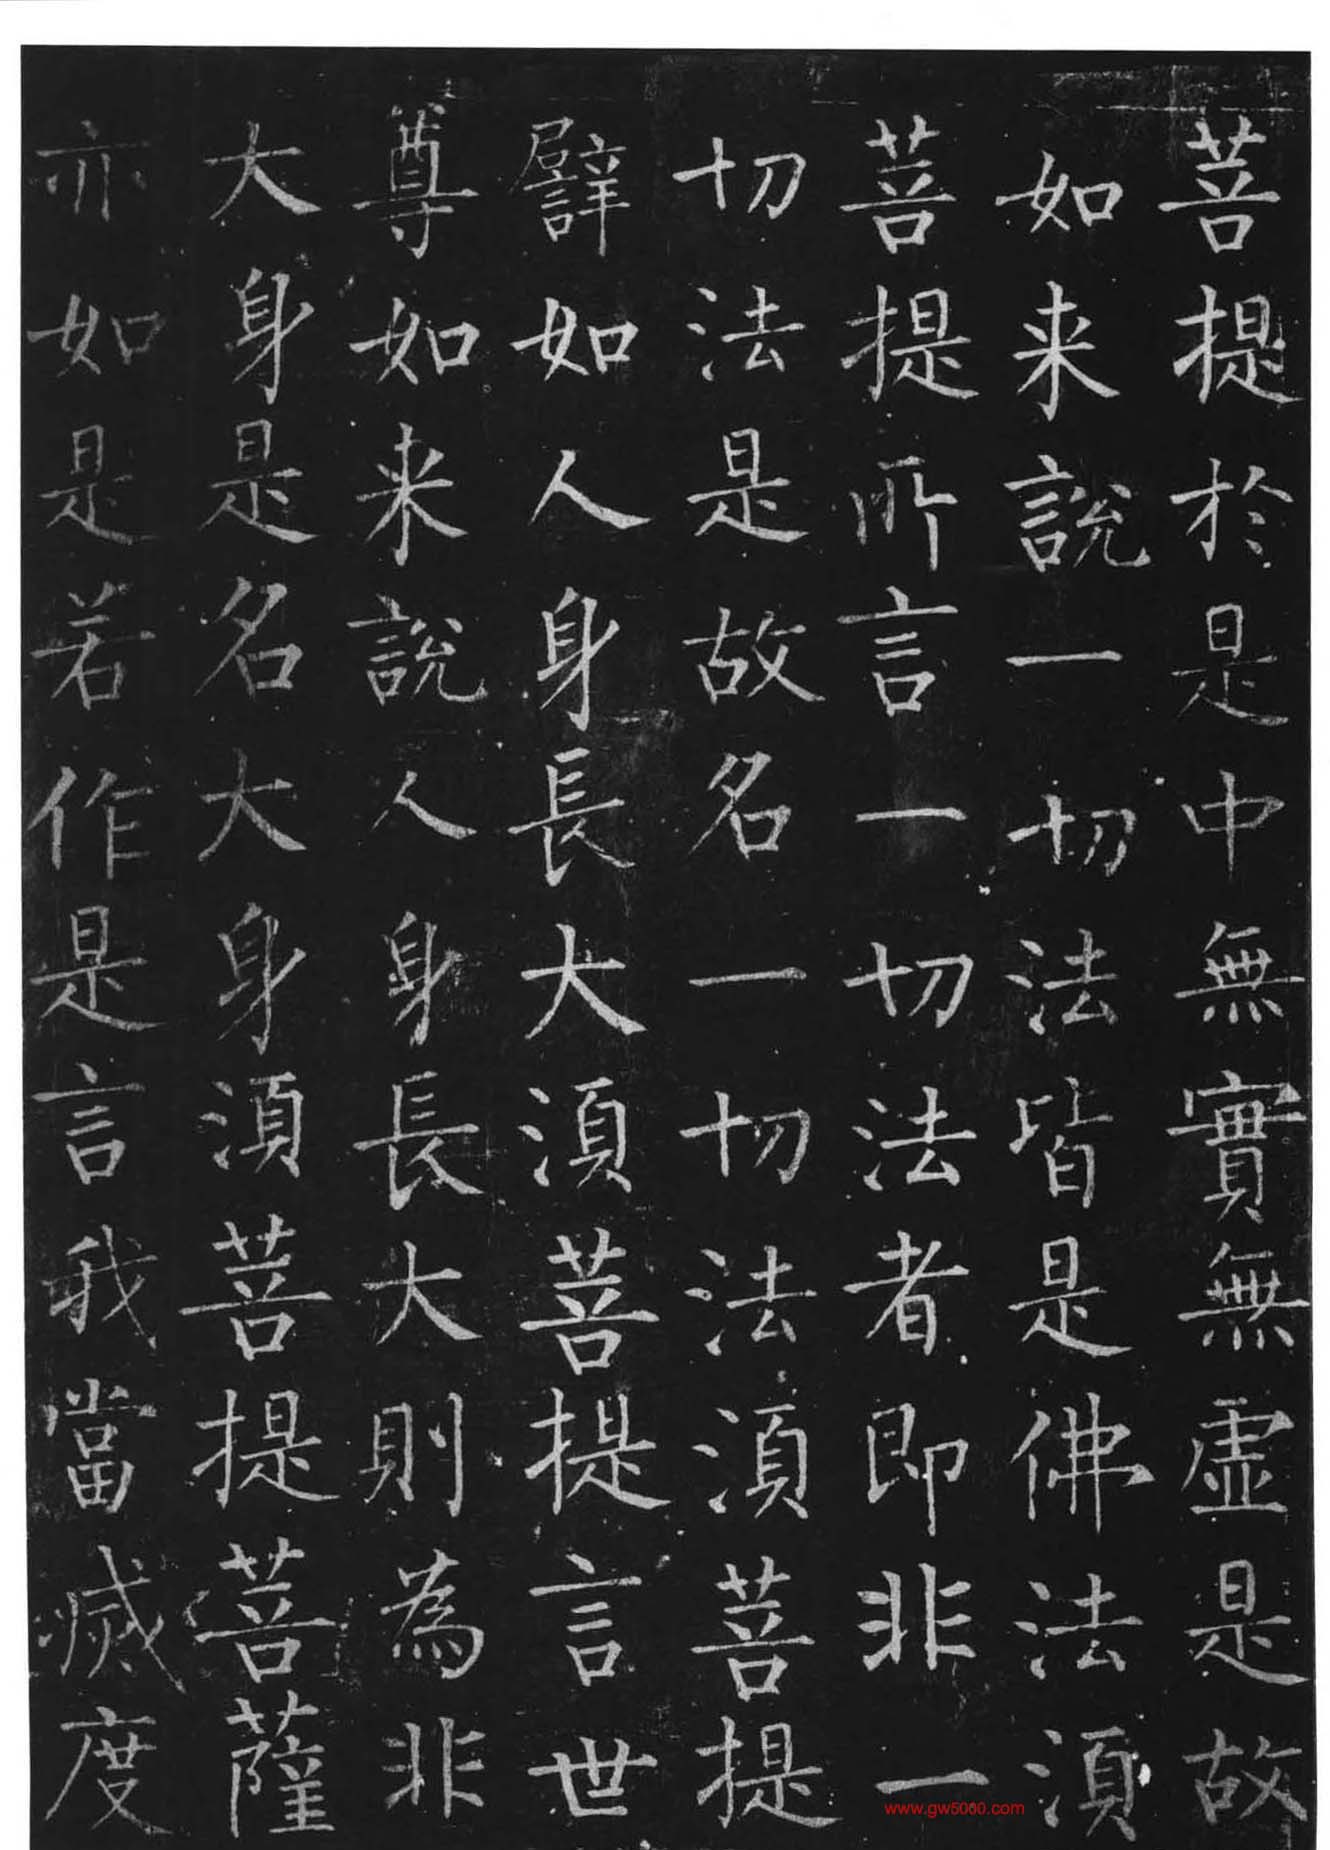 菩提於是中無實無虛是故
如来說一切法皆是佛法湏
菩提所言一切法者即非一
切法是故名一切法湏菩提
譬如人身長大湏菩提言世
尊如来說人身長大則為非
大身是名大身湏菩提菩薩
亦如是若作是言我當滅度
www.gw5000.com